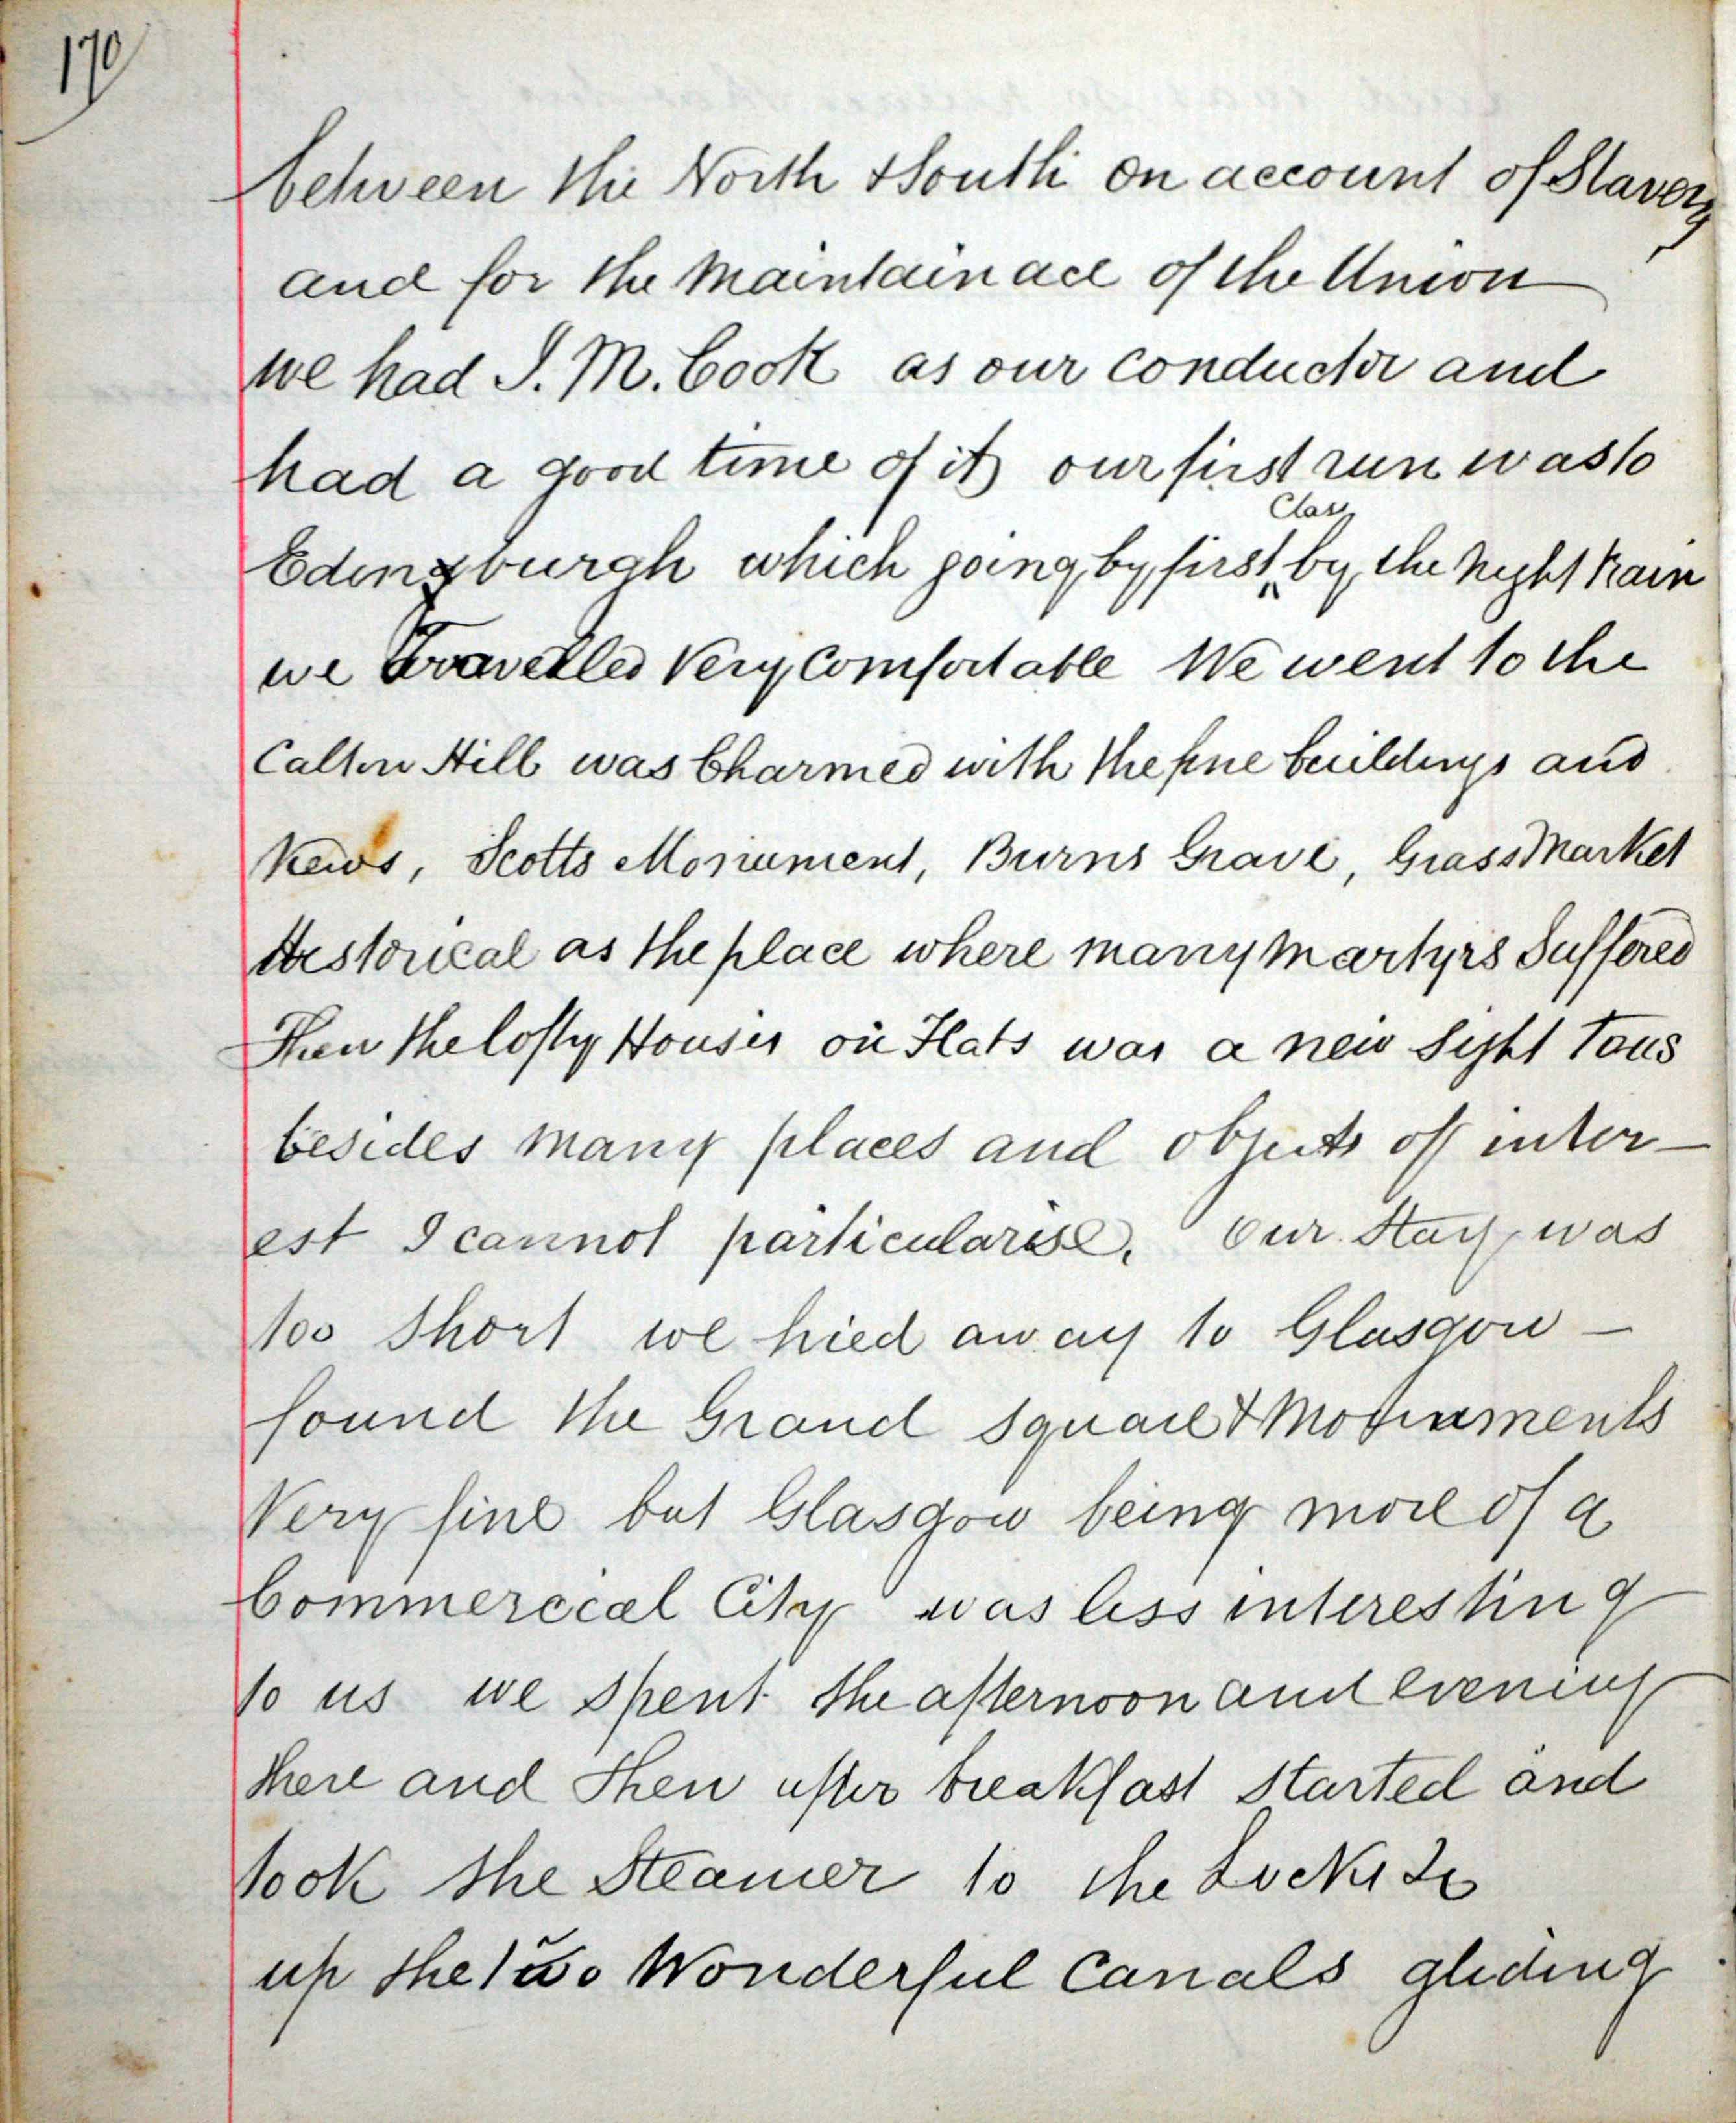 170
between the North & South on account of Slavery
and for the Maintainace of the Union
we had J. M. Cook as our conductor and
had a good time of it our first run was to
Class
Edingburgh which going by first by the night train
we travelled Very Comfortable We went to the
Calton Hill was Charmed with the fine buildings and
Scotts Monument, Burns Grave, Grass Market
Historical as the place where many Martyrs Suffered
Then the lofty Houses on Flats was a new Sight to us
besides many places and objects of inter-
est I cannot particularise. Our Stay was
too Short we hied away to Glasgow -
found the Grand Square & Monuments
Very fine but Glasgow being more of a
Commercial City was less interesting
to us we spent the afternoon and evening
there and then after breakfast started and
took the Steamer to the Locks &c
up the two Wonderful Canals gliding